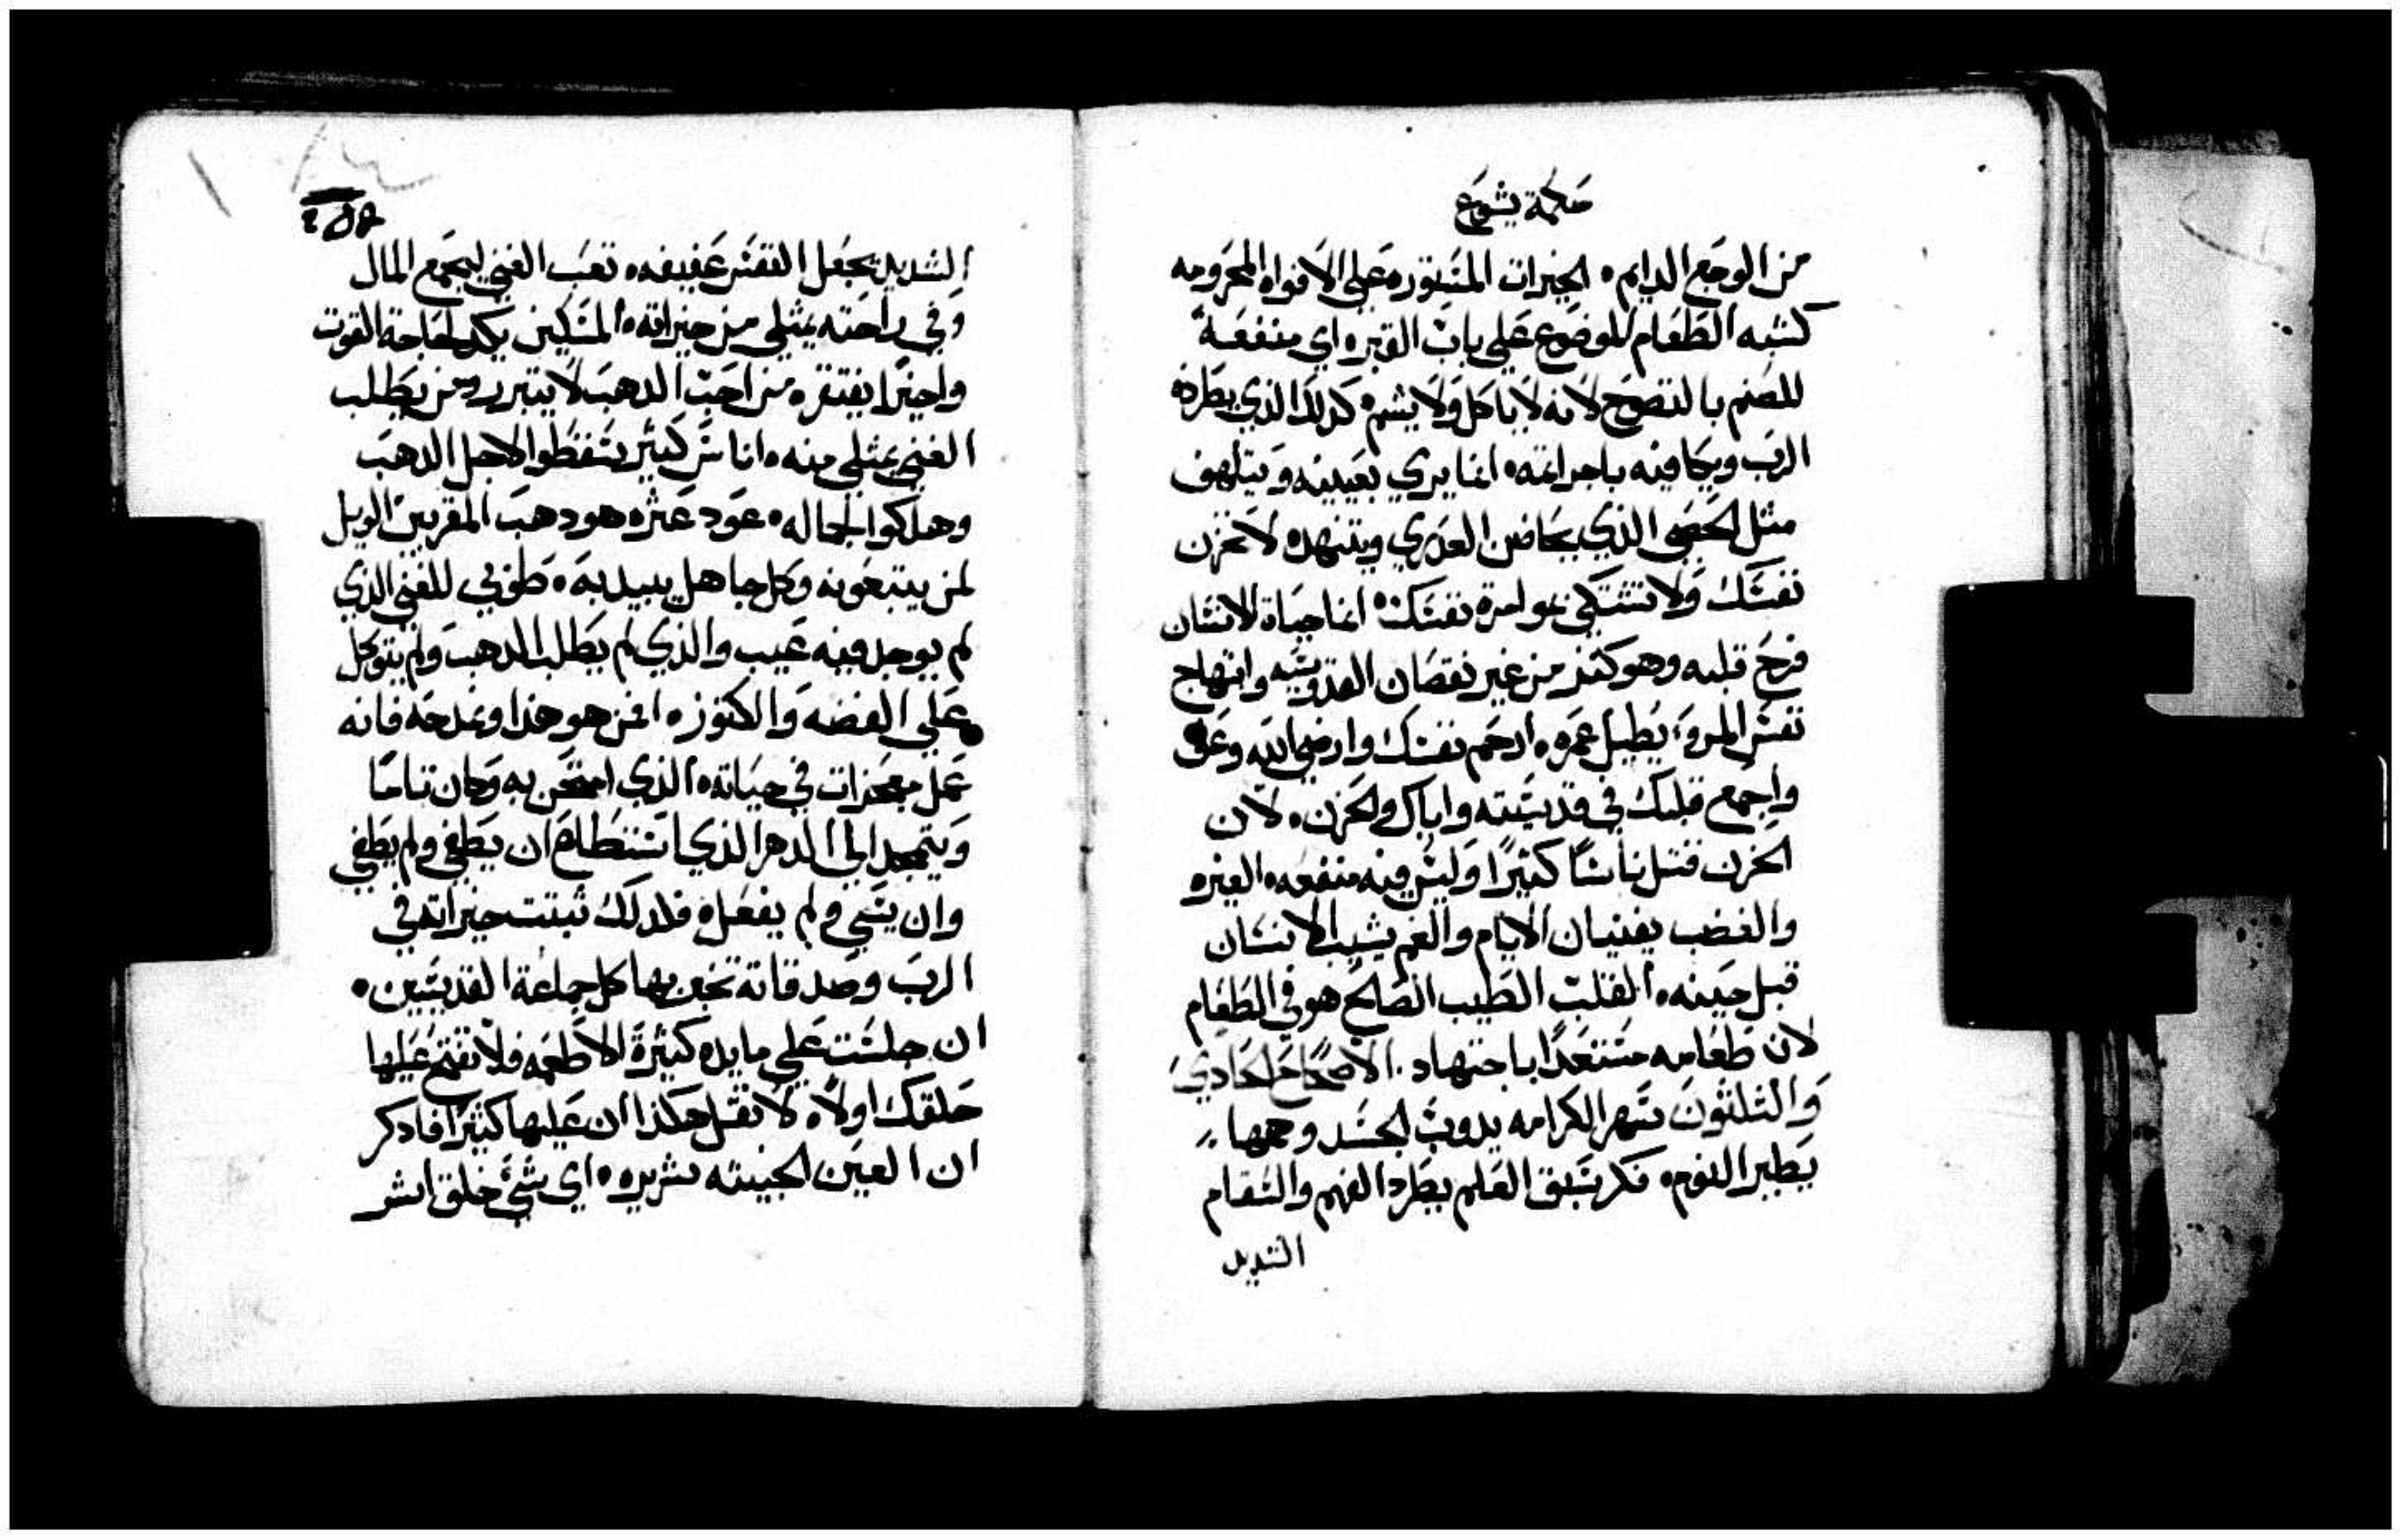 حكمة يشوع
من الوجع الدايم • الخيرات المستوره على الافواه المحرومه
كشبه الطعام الموضوع على باب القبر • اي منفعة
للصنم بالنضوح لانه لا ياكل ولا يشم • كدلك الذي يطرده
الرب ويكافيه باجرامته • انما يري بعينيه ويتلهف
مثل الخصي الذي يحاضن العدري ويتنهد • لا تحزن
نفسك ولا تشتكي نفسك • انما حياة الانسان
فرح قلبه وهو كنز من غير نقصان القدوسيه وابتهاج
نفس المروء يطيل عمره • ارحم نفسك وارضي الله وعف
واجمع قلبك في قديسيته واياك والحزن • لان
الحزن قتل ناسًا كثيرًا وليس فيه منفعه • الغيره
والغضب يفنيان الايام والغم يشيب الانسان
قبل حينه • القلب الطيب الصالح هو في الطعام
لان طعامه مستعدًا باجتهاد • الاصحاح الحادي
والثلثون سهر الكرامه يدوب الجسد وهمها
يطير النوم • فكر سبق العلم يطرد الفهم والسقام
الشديد
الشديد يجعل النفس عفيفه • تعب الغني ليجمع المال
وفي راحته يمتلي من خيراته • المسكين يكد لحاجة القوت
واخيرًا يفتقر • من احب الدهب لا يتبرر ومن يطلب
الغني يمتلي منه • اناس كثير سقطوا لاجل الدهب
وهلكوا لجماله • عود عثره هو دهب المقربين الويل
لمن يتبعونه وكل جاهل يبيد به • طوبي للغني الذي
لم يوجد فيه عيب والذي لم يطلب الدهب ولم يتوكل
علي الفضه والكنوز • من هو هذا ونمدحه فانه
عمل معجزات في حياته • الذي امتحن به وكان تامًا
ويتمجد الي الدهر الذي استطاع ان يطغي ولم يطغي
وان يسي ولم يفعل • فلدلك ثبتت خيراته في
الرب وصدقاته تخبر بها كل جماعة القديسين •
ان جلست علي مايده كثيرة الاطعمه فلا تفتح عليها
حلقك اولًا • لا تقل هكذا ان عليها كثيرًا فادكر
ان العين الخبيثه شريره • اي شيء خلق اشر